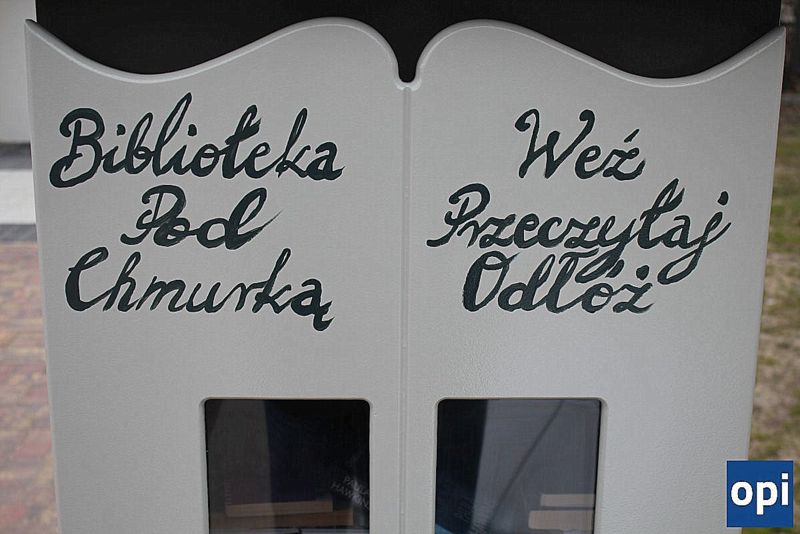 Biblioteka
Pod
Chmurką
Weź
Przeczytaj
Odłóż
opi